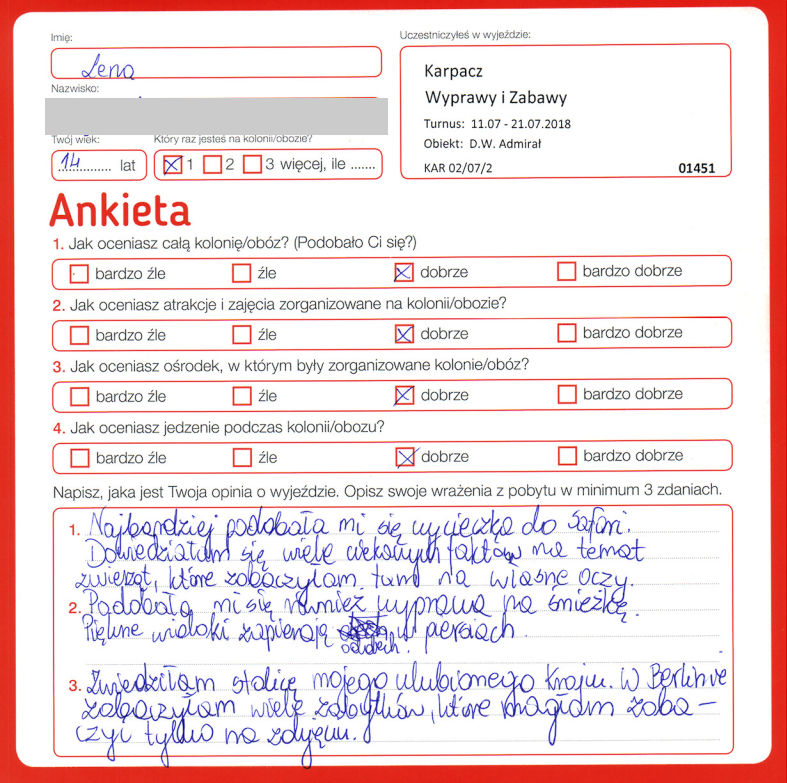 Imię:
Uczestniczyłeś w wyjeździe:
Lena
Karpacz
Nazwisko:
Wyprawy i Zabawy
Turnus: 11.07 - 21.07.2018
Twój wiek:
Który raz jesteś na kolonii/obozie?
Obiekt: D.W. Admirał
14 lat
1 2 3 więcej, ile .......
KAR 02/07/2 01451
Ankieta
1. Jak oceniasz całą kolonię/obóz? (Podobało Ci się?)
bardzo źle źle dobrze bardzo dobrze
2. Jak oceniasz atrakcje i zajęcia zorganizowane na kolonii/obozie?
bardzo źle źle dobrze bardzo dobrze
3. Jak oceniasz ośrodek, w którym były zorganizowane kolonie/obóz?
bardzo źle źle dobrze bardzo dobrze
4. Jak oceniasz jedzenie podczas kolonii/obozu?
bardzo źle źle dobrze bardzo dobrze
Napisz, jaka jest Twoja opinia o wyjeździe. Opisz swoje wrażenia z pobytu w minimum 3 zdaniach.
1. Najbardziej podobała mi się wycieczka do Safari.
Dowiedziałam się wiele ciekawych faktów na temat
zwierząt, które zobaczyłam tam na własne oczy.
2. Podobała mi się również wyprawa na śnieżkę.
Piękne widoki zapierają w piersiach.
oddech.
3. Zwiedziłam stolicę mojego ulubionego kraju. W Berlinie
zobaczyłam wiele zabytków, które mogłam zoba-
czyć tylko na zdjęciu.